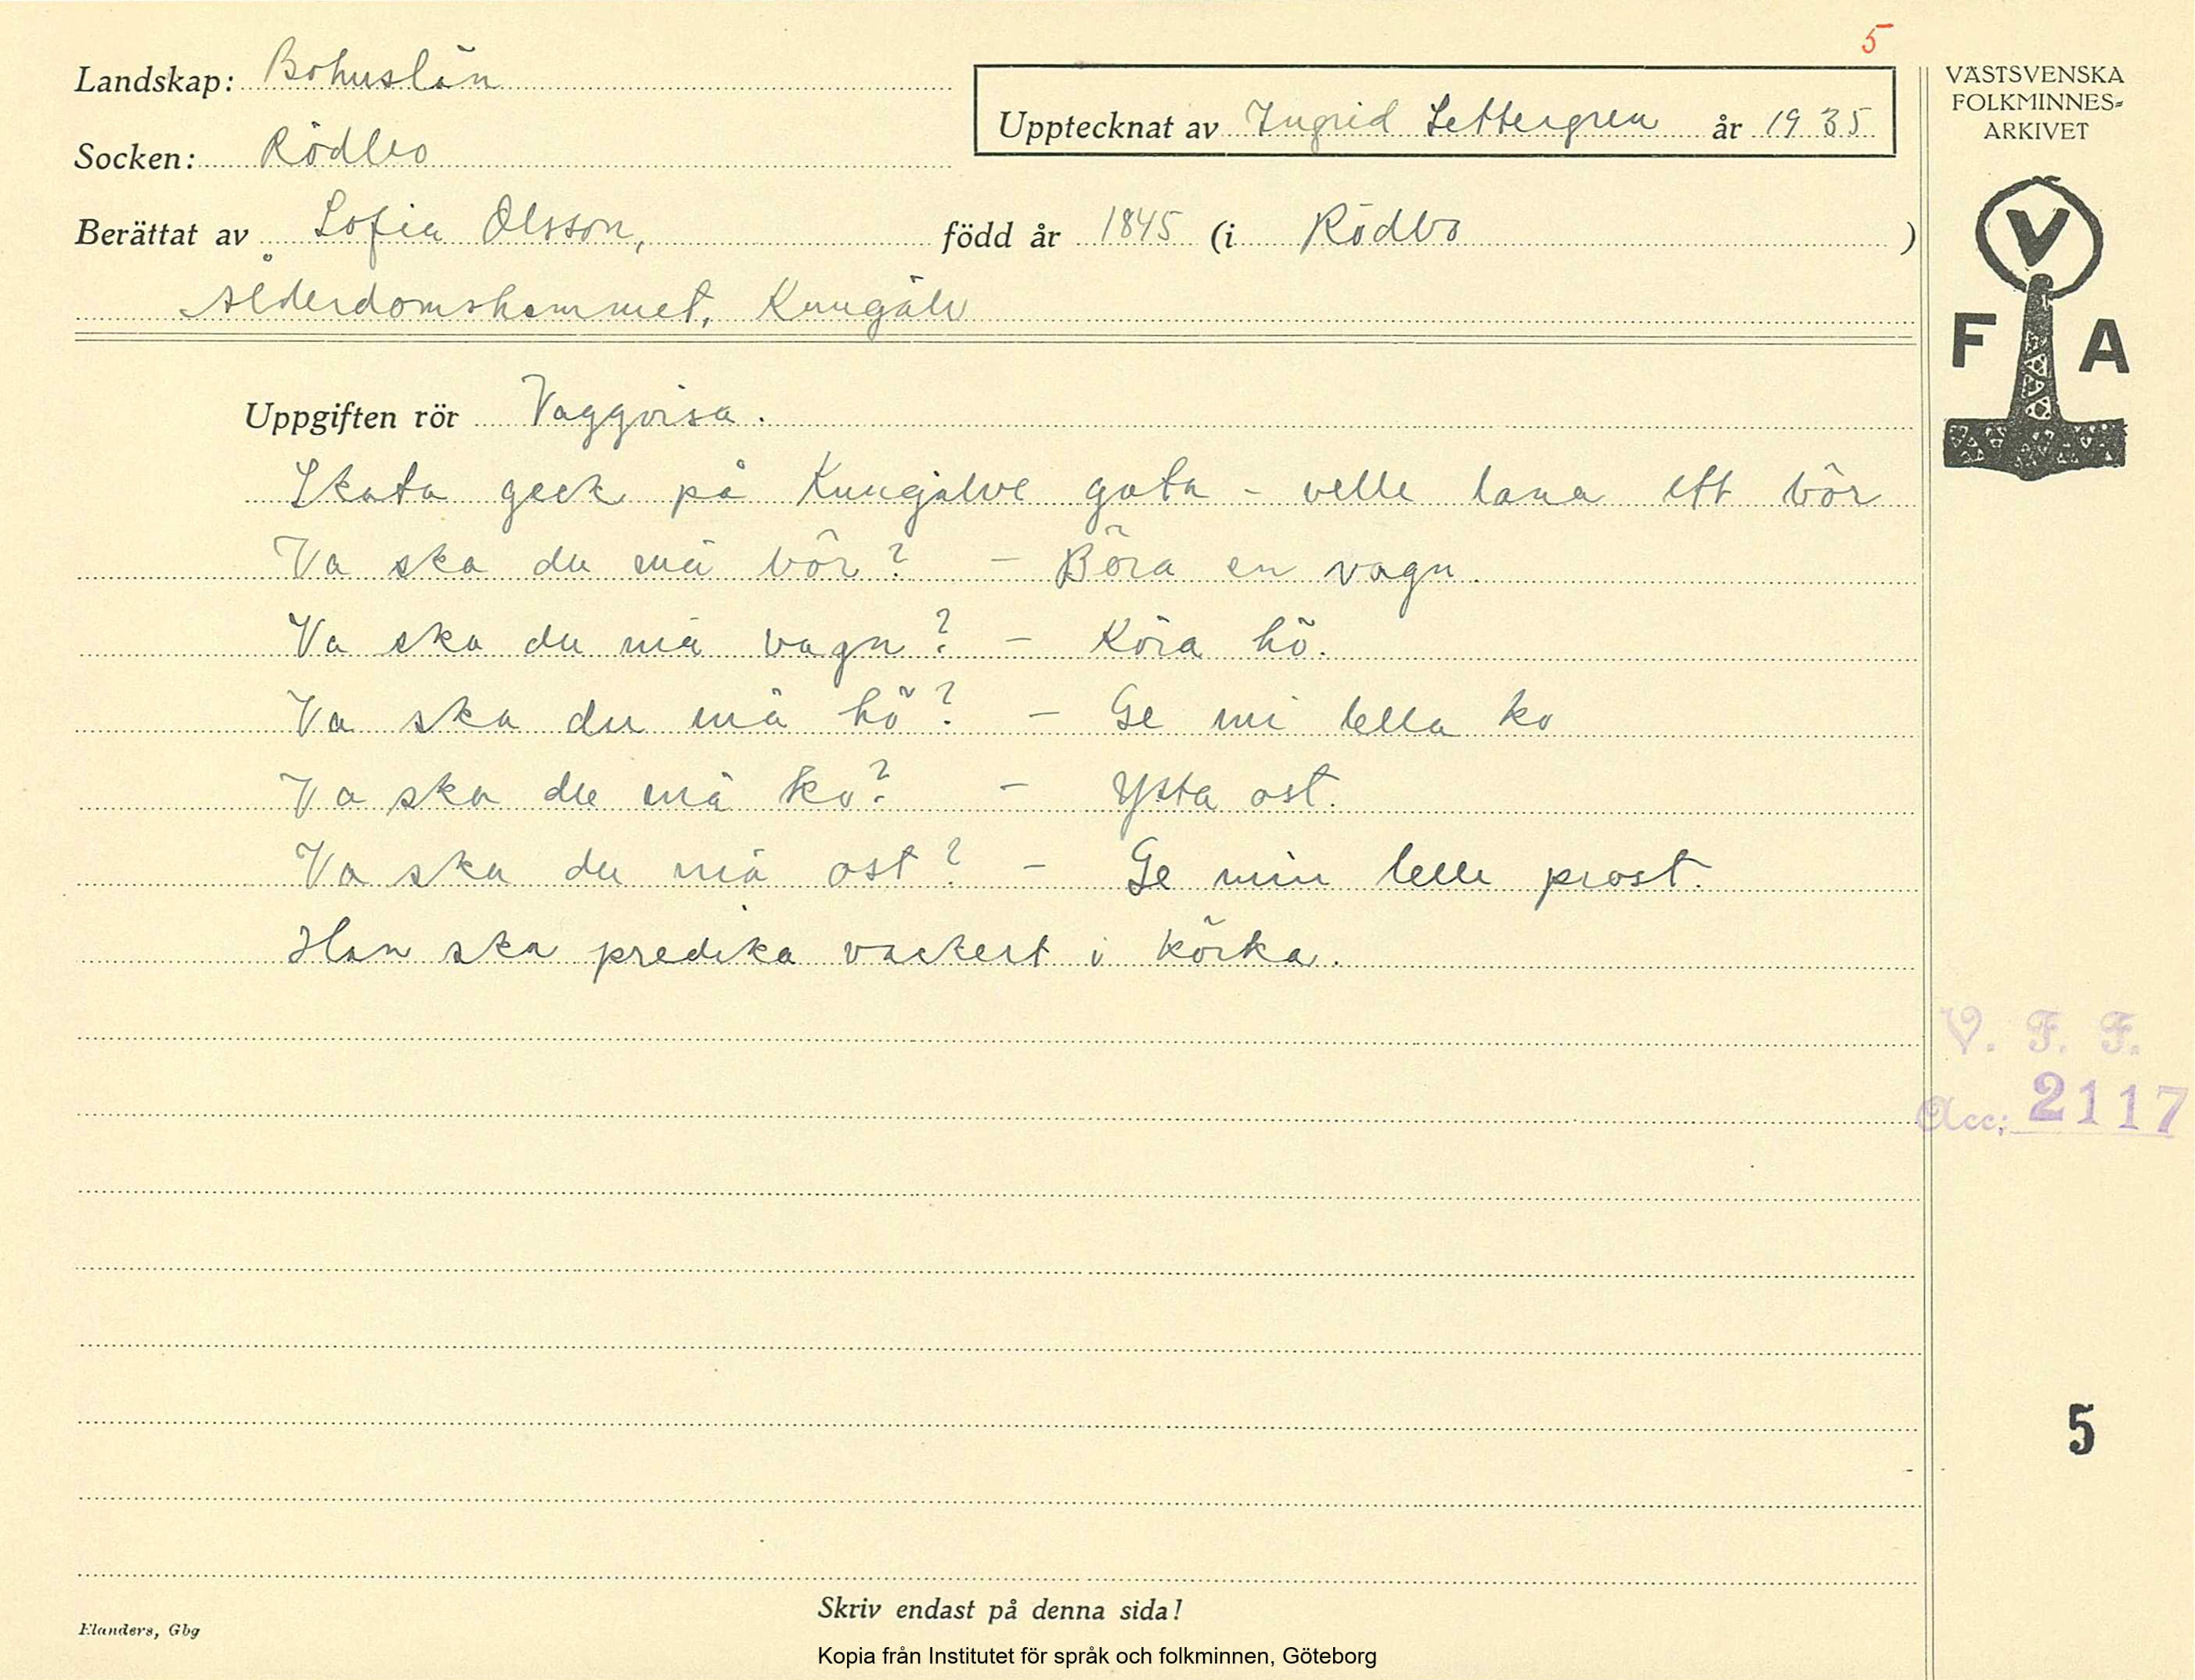 5
Landskap: Bohuslän
VÄSTSVENSKA
FOLKMINNES-
ARKIVET
Upptecknat av Ingrid Settergren år 1935
Socken: Rödbo
Berättat av Sofia Olsson, född år 1845 (i Rödbo )
Ålderdomshemmet, Kungälv
V
F A
Uppgiften rör Vaggvisa.
Skata geck på Kungälve gata - velle lana ett bör
Va ska du mä bör? - Böra en vagn.
Va ska du mä vagn? - Köra hö.
Va ska du mä hö? - Ge mi lella ko
Va ska du mä ko? - Ysta ost.
Va ska du mä ost? - Ge min lelle prost.
Han ska predika vackert i körka.
V. F. F.
Acc: 2117
5
Skriv endast på denna sida!
Elanders, Gbg
Kopia från Institutet för språk och folkminnen, Göteborg